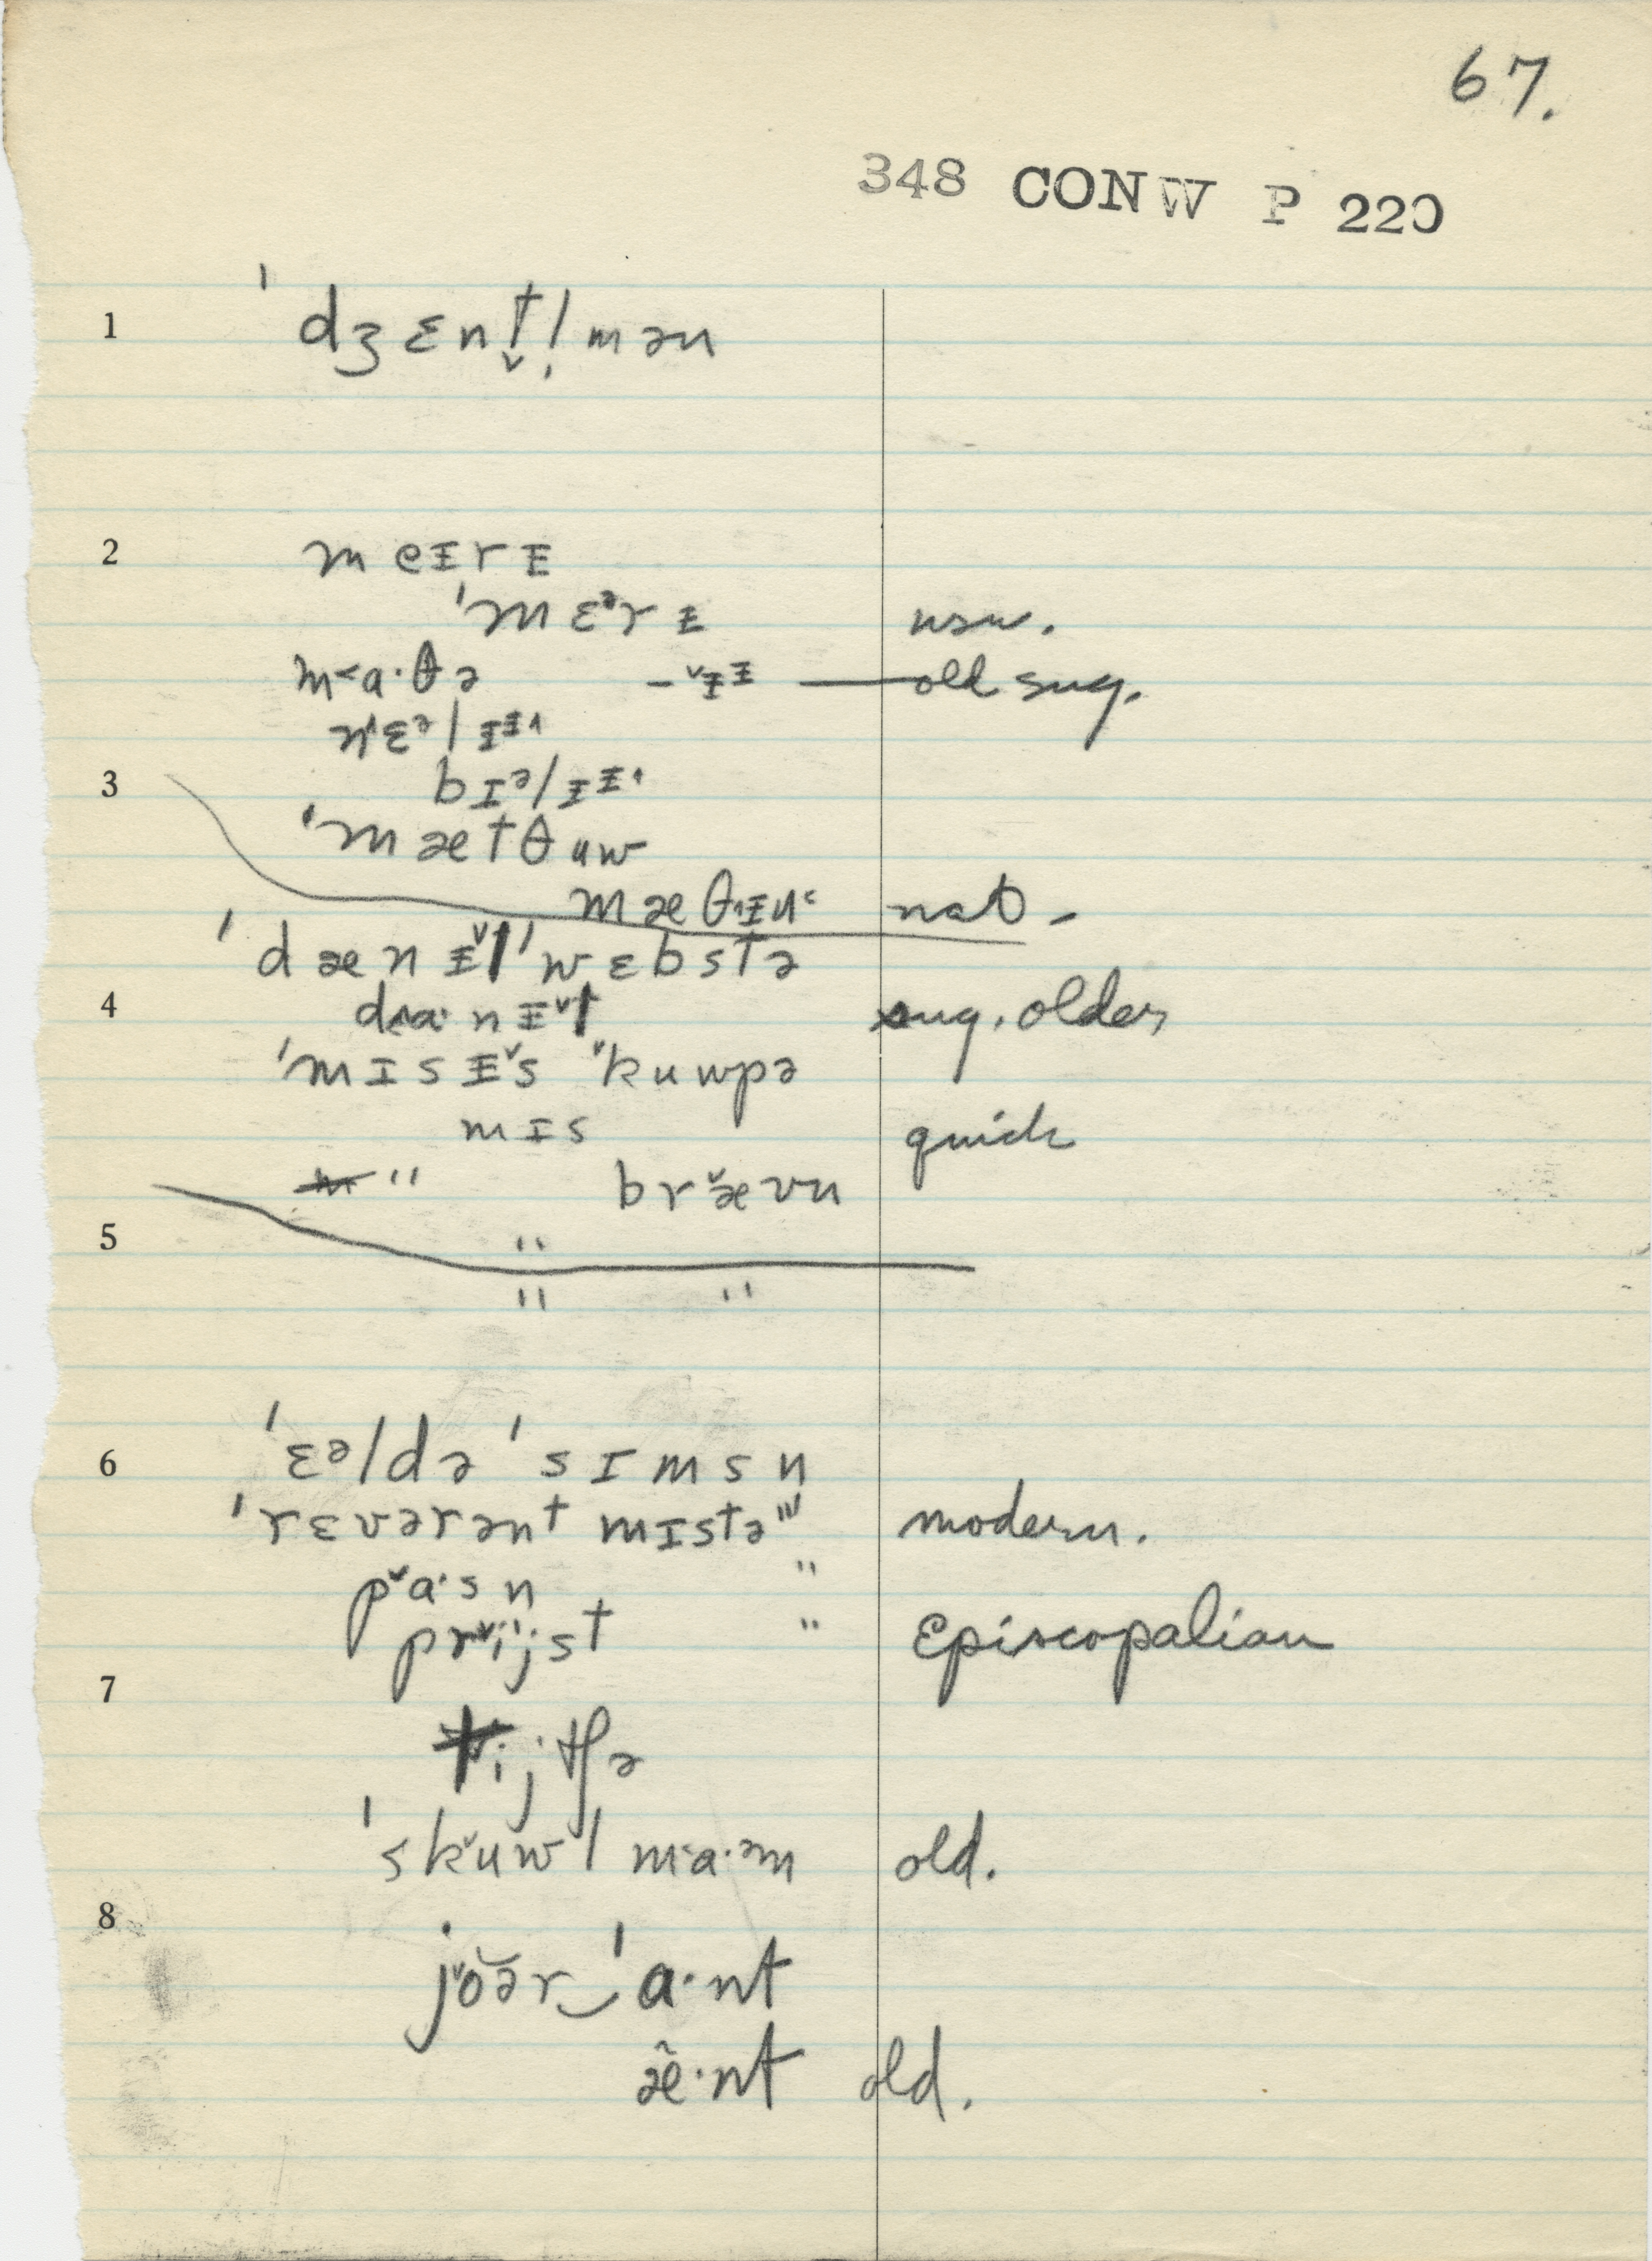 67.
348 CONW P 220
1 ˈdʒɛnt̬l̩mən
2 meᵻrᵻ
ˈmɛᵊrᵻ nsn.
m˂a·θə -ˇᵻᵻ — old sug.
nꜛɛᵊlᵻᵻ˄
3 bɪᵊlᵻᵻ˄
ˈmætθuw
mæθ˄ᵻu˂ nat-
ˈdænᵻˇl ˈwɛbstə
4 d˄a·nᵻˇl sug. older
ˈmɪsᵻˇs ˇkuwpə
mɪs quick
" brˇævn
5 "
" "
6 ˈɛᵊldə ˈsɪmsn
ˈrɛvərənt mɪstə " modern.
pˇa·sn "
prˇijst " Episcopalian
7 tijtʃə
ˈskˇuwl m˂a·ᵊm old.
8 jˇŏə̆r‿ˈa·nt
æ̃·nt old.